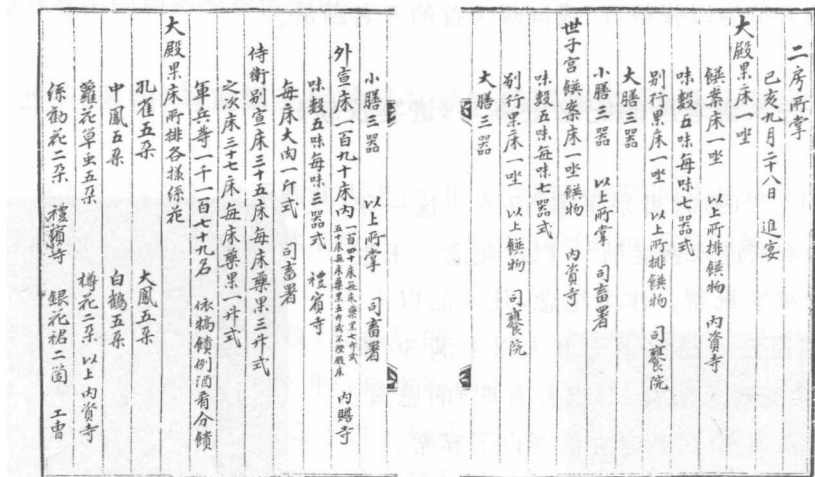 二房所掌
己亥九月二十八日 進宴
大殿果床一坐
饌案床一坐 以上所排饌物 內資寺
味數五味每味七器式
別行果床一坐 以上所排饌物 司饔院
大膳三器
小膳三器 以上所掌 司畜署
世子宮饌案床一坐饌物 內資寺
味數五味每味七器式
別行果床一坐 以上饌物 司饔院
大膳三器
小膳三器 以上所掌 司畜署
外宣床一百九十床內 一百四十床每床藥果七升式 五十床每床藥果五升式不 床 內贍寺
味數五味每味三器式 禮賓寺
每床大肉一斤式 司畜署
侍衛別宣床三十五床每床藥果三升式
之次床三十七床 每床藥果一升式
軍兵等一千一百七十九名 依犒饋例酒肴分饋
大殿果床所排各樣係花
孔雀五朶 大鳳五朶
中鳳五朶 白鶴五朶
蘿花草虫五朶 樽花二朶 以上內資寺
係勸花二朶 禮賓寺 銀花裙二箇 工曹